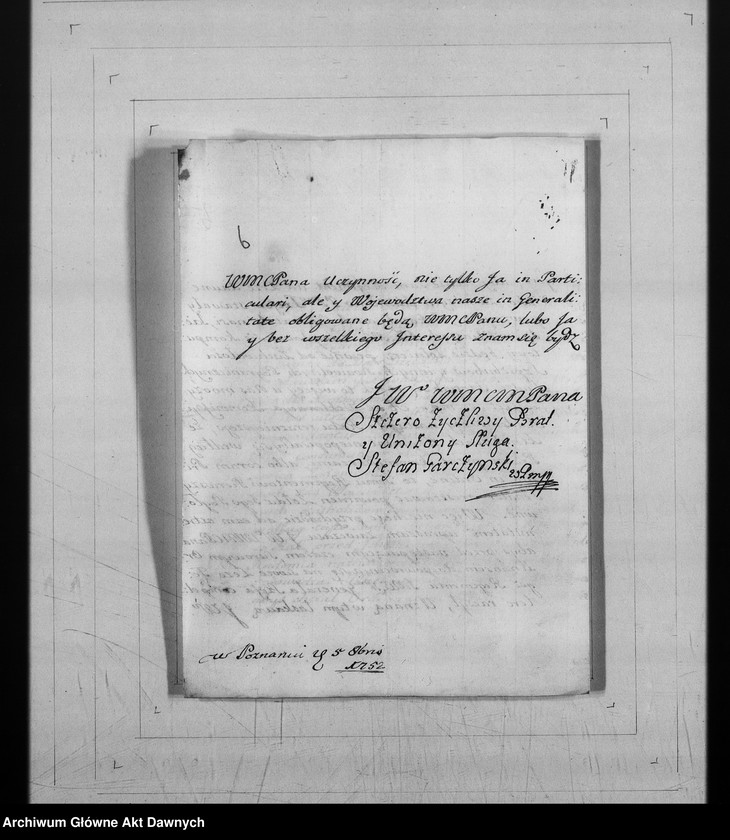 6
WMCPana Uczynność, nie tylko Ja in Parti:
culari, ale y Województwa nasze in Generali:
tate obligowane będą WMCPanu, lubo Ja
y bez wszelkiego Interessu znam się bydz
JW WMCMPana
Szczero Życzliwy Brat.
y Uniżony Sługa.
Stefan Garczyński
w Poznaniu 5 8bris
1752
Archiwum Główne Akt Dawnych